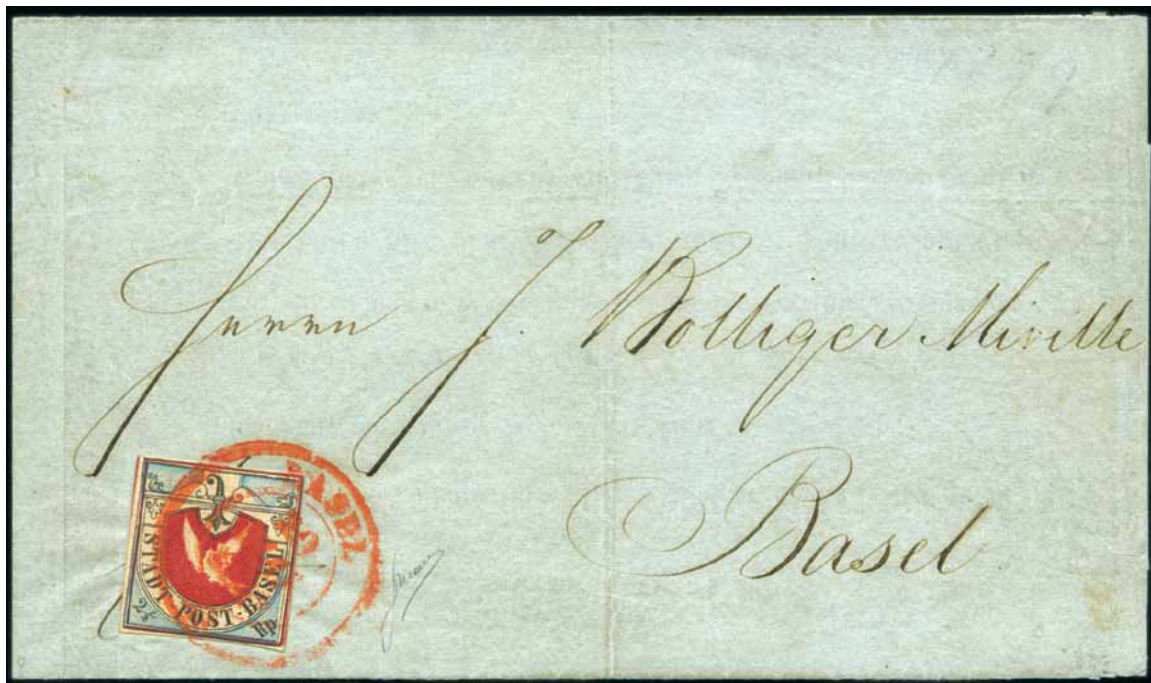 Herrn J. Bolliger Miville
Basel
BASEL
STADT-POST-BASEL
2½ Rp.